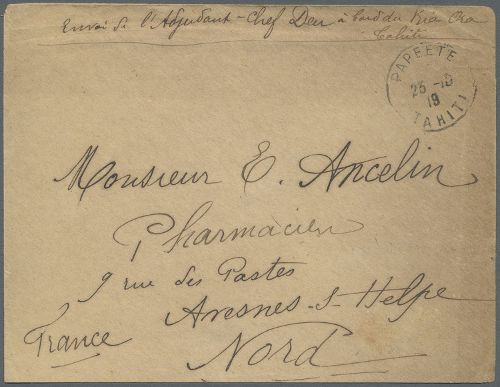 Envoi de l'Adjudant-Chef Deu à bord du Kia Ora
Tahiti
PAPEETE
25 -10
19
TAHITI
Monsieur E. Ancelin
Pharmacien
9 rue des Postes
Avesnes-s-Helpe
Nord
France